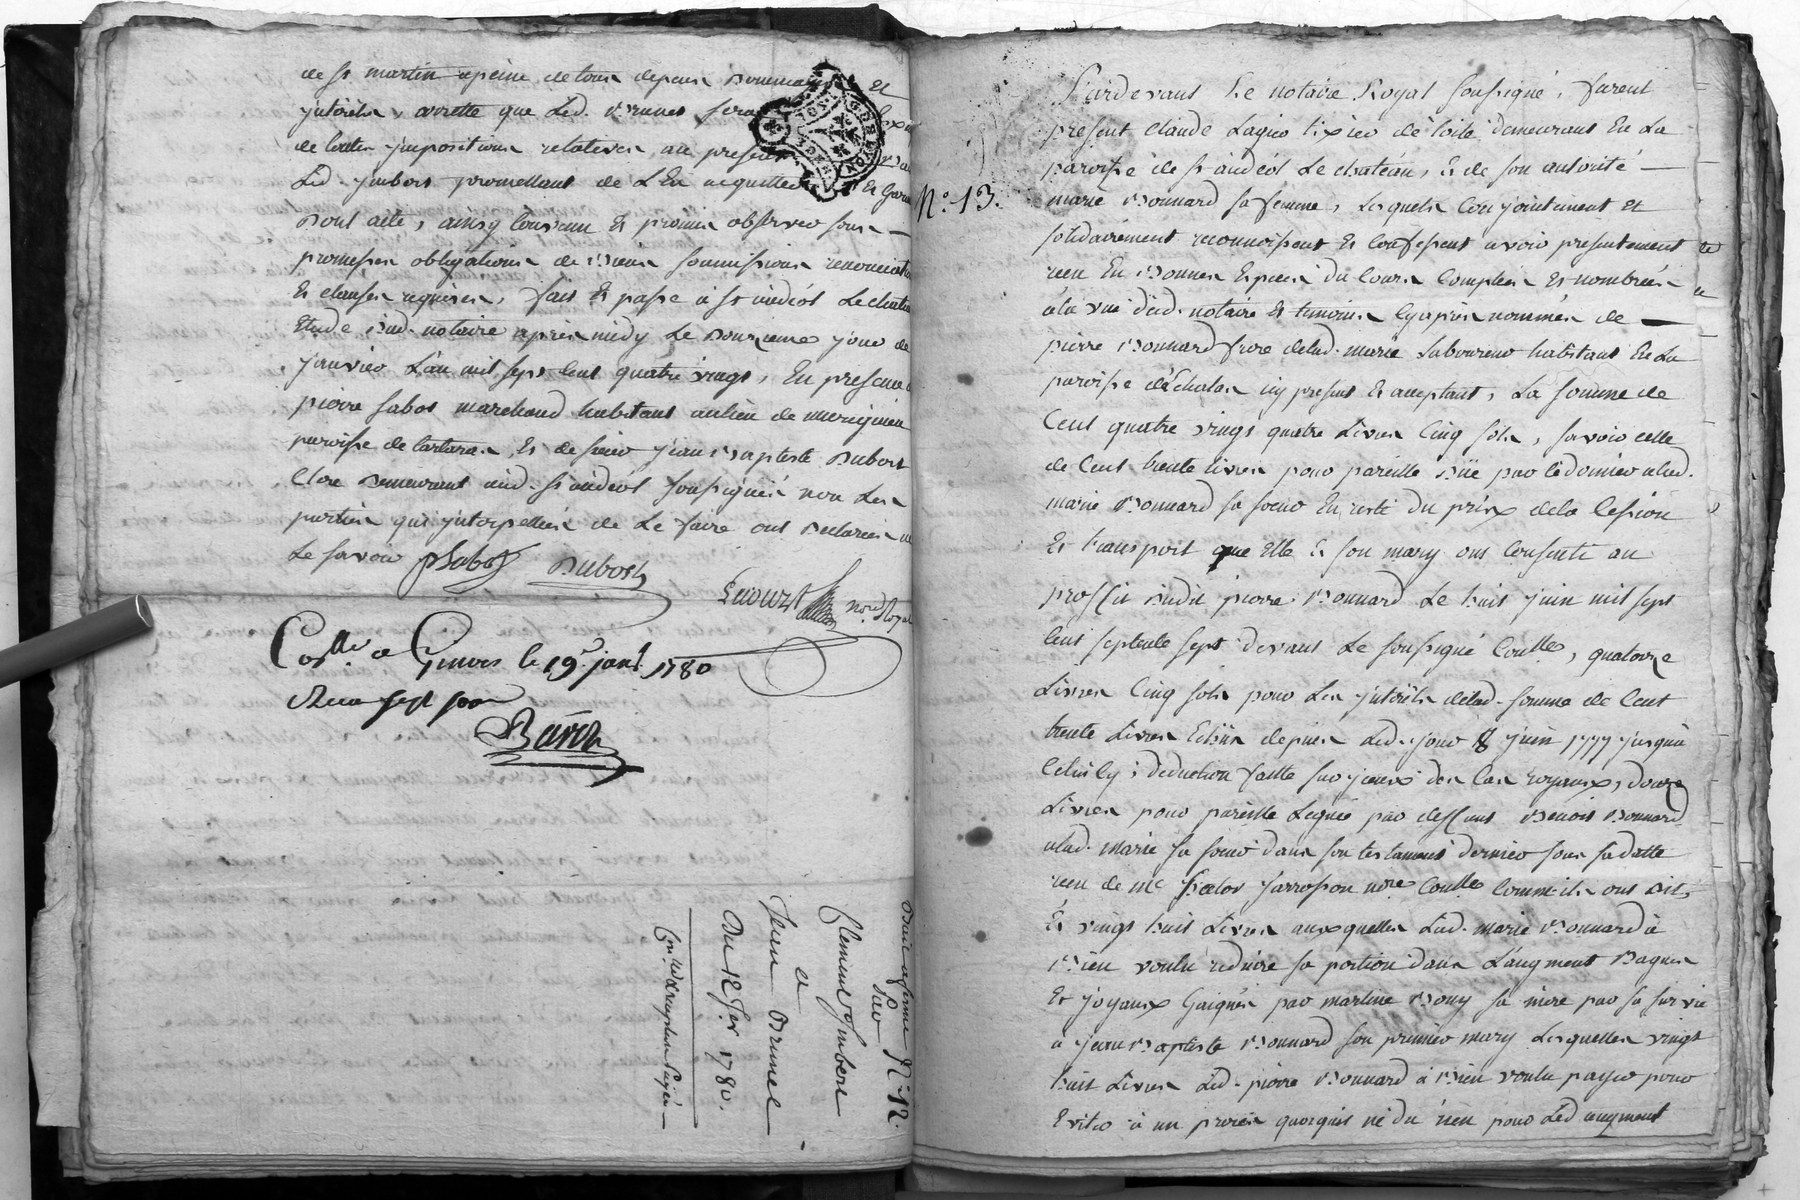 de St martin apeine de tous depens dommages Et
jnterets, arrette que Led. Brunel sera
de toutes jmpositions relatives au present
Led. jmbert promettant de L'En acquitter Et Gara
Dont acte, ainsy Convenu Et promis observer sous
promesses obligations de Biens soumissions renonciation
Et clauses requises, fait Et passé à St andéol Le chateau
Etude dud. notaire après midy Le Douzieme jour de
janvier L'an mil sept Cent quatre vingt, En presence de
pierre sabot marchand habitant au lieu de
paroisse de tartaras, Et de sieur jean Baptiste Dubost
Clerc demeurant aud. St andéol soussignés non Les
parties qui jnterpellées de Le faire ont Declarées ne
Le savoir PSabot Dubost
nore. Royal
Collé a Givors le 19e. janv. 1780
Recu sept sous
Baron
Bail a ferme N° 12.
par
Clement jmbert
a
Jean Brunel
Du 12 Jer 1780.
N°. 13.
Pardevant Le notaire Royal soussigné, furent
present Claude Tixier demeurant En La
paroisse de St andéol Le chateau, Et de son autorité
marie Bonnard sa femme, Lesquels Conjointement Et
solidairement reconnoissent Et Confessent avoir presentement
reçu En Bonnes Especes du Cours Comptées Et nombrées
à la vue dud. notaire Et temoins Cy après nommés de
pierre Bonnard frere delad. marie Laboureur habitant En La
paroisse d'Echalas icy present Et acceptant, La somme de
Cent quatre vingt quatre Livres Cinq sols, savoir celle
de Cent trente livres pour pareille düe par Ce dernier alad.
marie Bonnard sa soeur En reste du prix dela Cession
Et transport que Elle Et son mary ont Consenti au
proffit dudit pierre Bonnard Le huit juin mil sept
Cent septente sept devant Le soussigné Conlle, quatorze
Livres Cinq sols pour Les jnterêts delad. somme de Cent
trente Livres Echus depuis Led. jour 8 juin 1777 jusqu'à
Celuicy, deduction faitte sur yceux des Cas royaux, douze
Livres pour pareille Leguée par deffunt Benoit Bonnard
alad. marie sa soeur dans son testament dernier sous sa datte
reçu de Me farrossou nore Conlle Comme ils ont dit,
Et vingt huit Livres auxquelles Lad. marie Bonnard à
Bien voulu reduire sa portion dans L'augment Bagues
Et joyaux Gaignés par martine Bony sa mere par sa survie
à jean Baptiste Bonnard son premier mary Lesquelles vingt
huit Livres Led. pierre Bonnard à Bien voulu payer pour
Eviter à un procès quoyqu'il ne du rien pour Led augment